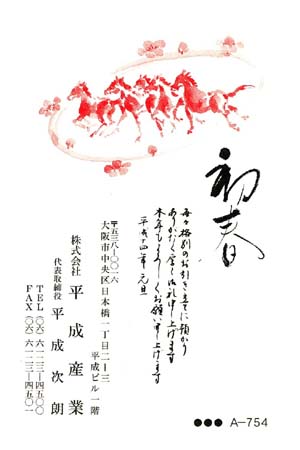 初春
毎々格別のお引き立てに預かり
ありがたく厚くお礼申し上げます
本年もよろしくお願い申し上げます
平成十四年 元旦
〒五三八-〇〇一六
大阪市中央区日本橋一丁目二-三
平成ビル一階
株式会社 平成産業
代表取締役 平成次朗
TEL (〇六) 六一二三-四五〇〇
FAX (〇六) 六一二三-四五〇一
●●● A-754